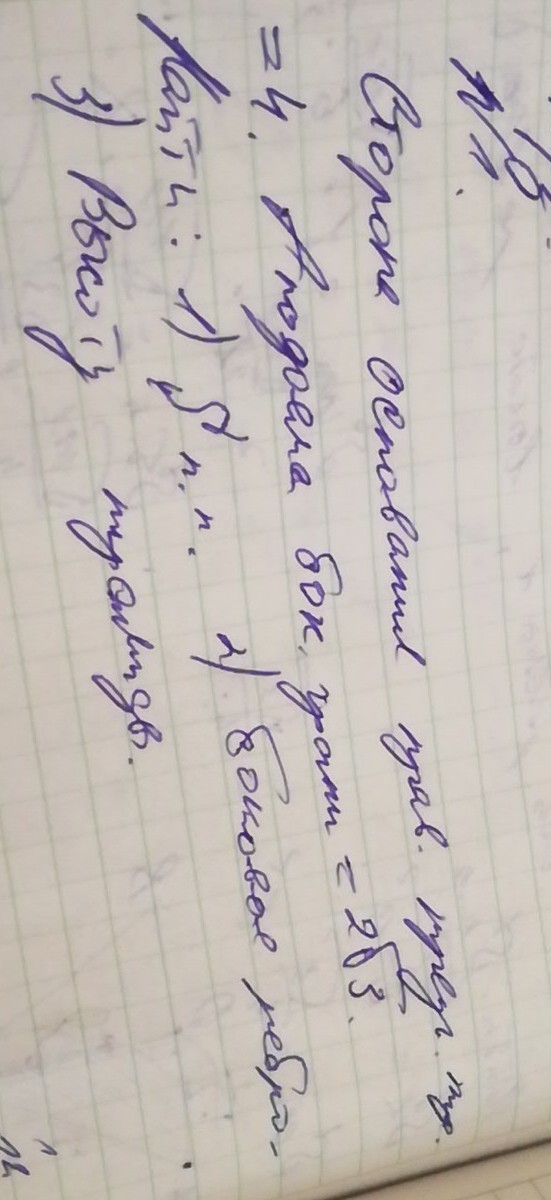 №1.
Сторона основания прав. треуг. пир.
= 4. Апофема бок. грани = 2√3.
Найти: 1) S п.п. 2) боковое ребро.
3) Высоту пирамиды.